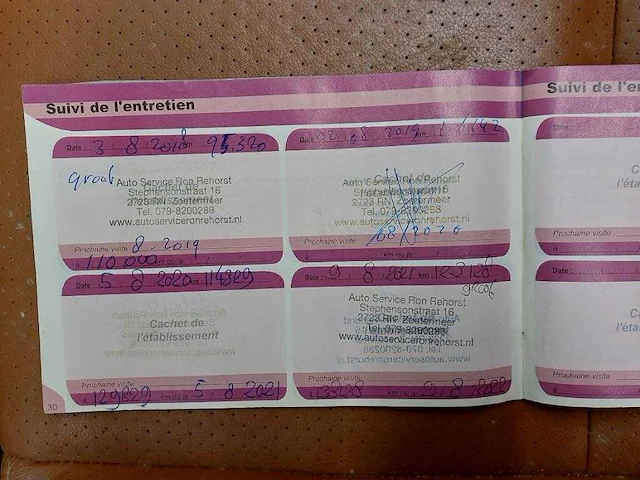 Suivi de l'entretien
Date : 3 . 8 . 2018 km 95.320
groot
Auto Service Ron Rehorst
Stephensonstraat 16
2723 RN Zoetermeer
Tel. 079-8200288
www.autoserviceronrehorst.nl
Prochaine visite 8 - 2019
à 110.000 km ou le
Date : 02.08.2019 km
Auto Service Ron Rehorst
Stephensonstraat 16
2723 RN Zoetermeer
Tel. 079-8200288
www.autoserviceronrehorst.nl
Prochaine visite 08/2020
à km ou le
Date : 5 . 8 . 2020 km 114829
Cachet de
l'établissement
Prochaine visite
à 129829 km ou le 5 . 8 . 2021
Date : 9 . 8 . 2021 km : 123128
groot
Auto Service Ron Rehorst
Stephensonstraat 16
2723 RN Zoetermeer
Tel. 079-8200288
www.autoserviceronrehorst.nl
Prochaine visite
à 138128 km ou le 9 . 8 . 2022
30
Suivi de l'e
Date :
Ca
l'éta
Prochaine visite
à
Date :
Ca
l'éta
Prochaine visite
à